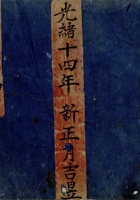 光緒十四年新正月吉旦